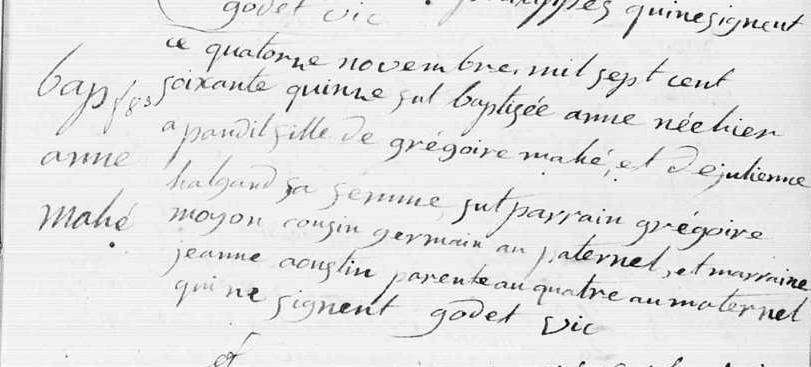 godet vic
qui ne signent
ce quatorne novembre mil sept cent
soixante quinne fut baptisée anne née hier
a pandit fille de grégoire mahé, et de julienne
halgand sa femme, fut parrain grégoire
moyon cousin germain au paternel, et marraine
jeanne aoustin parente au quatre au maternel
qui ne signent godet vic
bap
anne
mahé